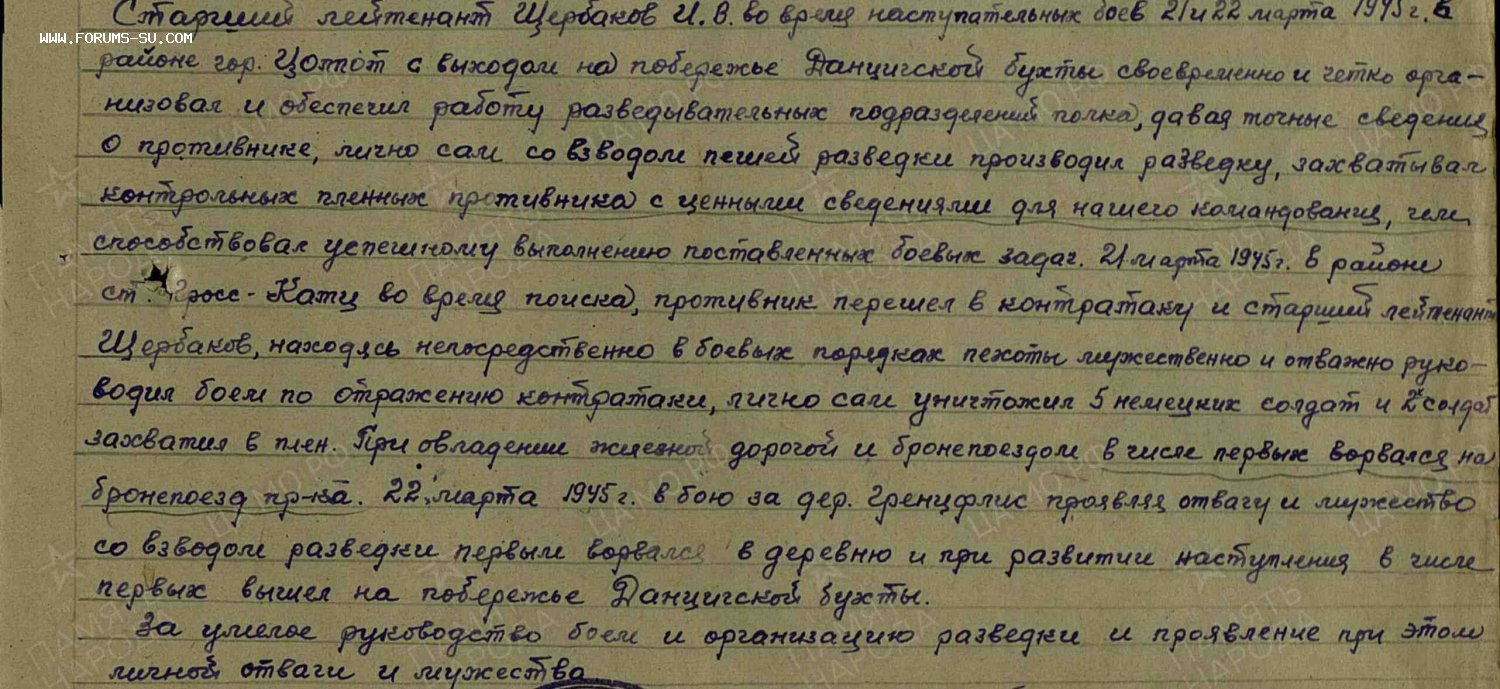 Старший лейтенант Щербаков И.В. во время наступательных боев 21 и 22 марта 1945 г. в
WWW.FORUMS-SU.COM
районе гор. Цоппот с выходом на побережье Данцигской бухты своевременно и четко орга-
низовал и обеспечил работу разведывательных подразделений полка, давая точные сведения
о противнике, лично сам со взводом пешей разведки производил разведку, захватывал
контрольных пленных противника с ценными сведениями для нашего командования, чем
способствовал успешному выполнению поставленных боевых задач. 21 марта 1945г. в районе
ст. Гросс-Катц во время поиска, противник перешел в контратаку и старший лейтенант
Щербаков, находясь непосредственно в боевых порядках пехоты мужественно и отважно руко-
водил боем по отражению контратаки, лично сам уничтожил 5 немецких солдат и 2х солдат
захватил в плен. При овладении железной дорогой и бронепоездом в числе первых ворвался на
бронепоезд пр-ка. 22 марта 1945 г. в бою за дер. Гренцфлис проявляя отвагу и мужество
со взводом разведки первым ворвался в деревню и при развитии наступления в числе
первых вышел на побережье Данцигской бухты.
За умелое руководство боем и организацию разведки и проявление при этом
личной отваги и мужества
ПАМЯТЬ НАРОДА
ЦАМО РФ